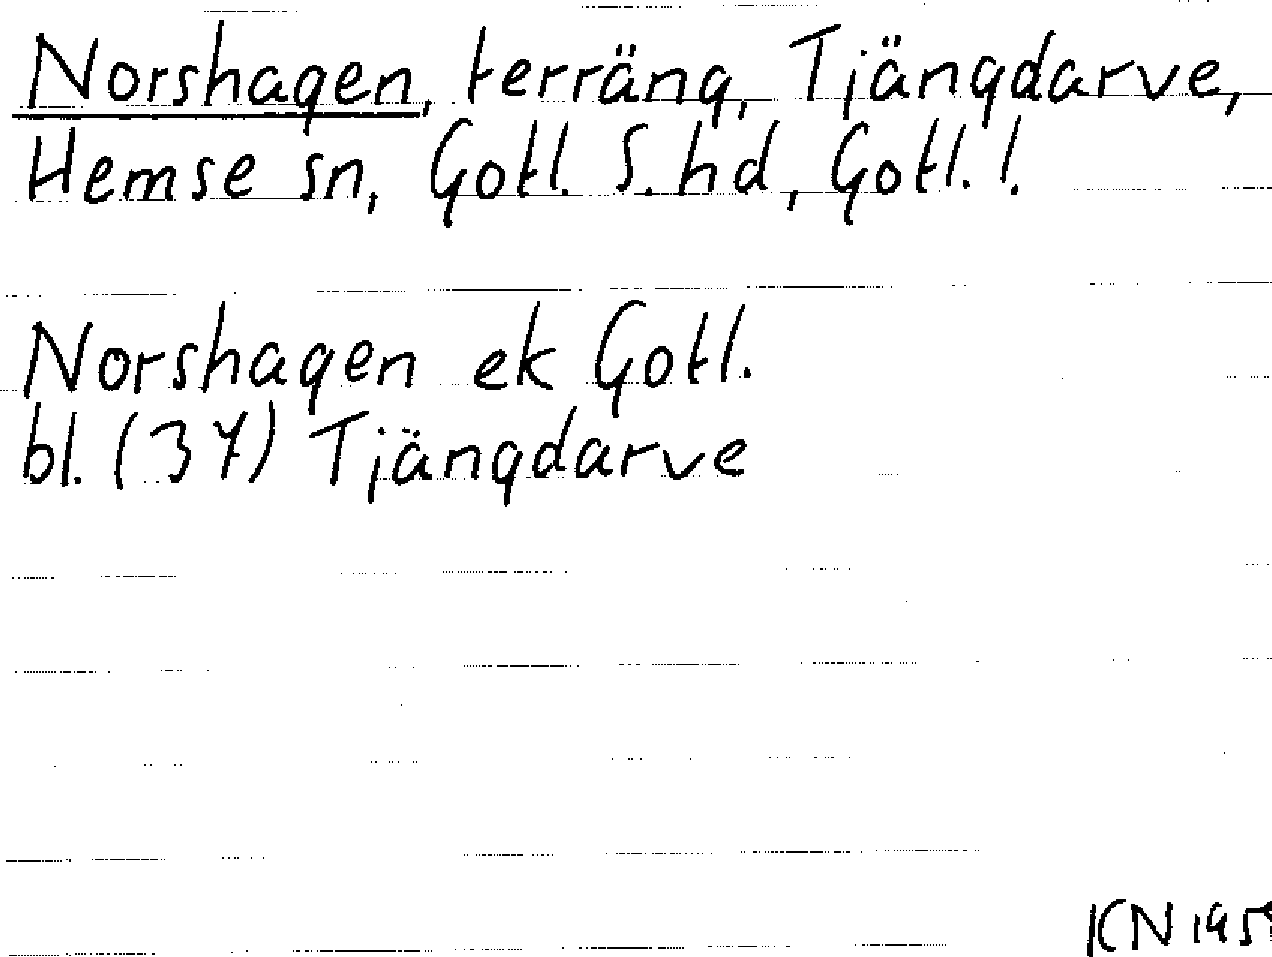 Norshagen, terräng, Tjängdarve,
Hemse sn, Gotl. S. hd, Gotl. !.
Norshagen ek Gotl.
bl. (37) Tjängdarve
KN